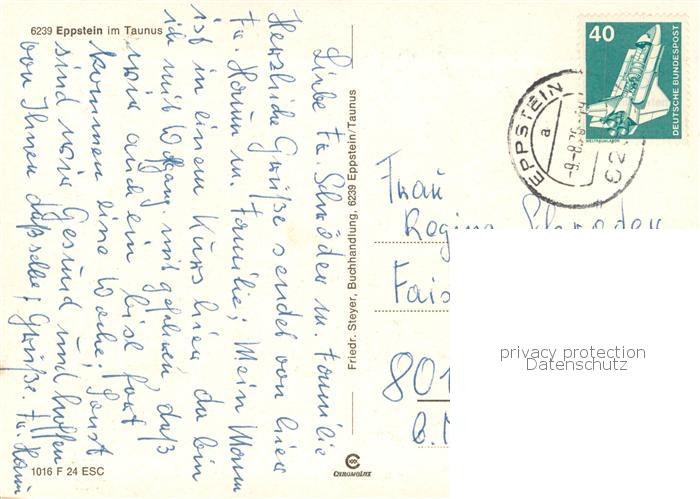 6239 Eppstein im Taunus
Liebe Fr. Schröder u. Familie
Herzliche Grüße sendet von hier
Fr. Hann u. Familie; Mein Mann
ist in einem Kurs hier da bin
ich mit Wolfgang mit gefahren, daß
wir auch ein bisl fort
kommen eine Woche; Sonst
sind wir Gesund und hoffen
von Ihnen daßselbe; Grüße. Fr. Hann
1016 F 24 ESC
Friedr. Steyer, Buchhandlung, 6239 Eppstein/Taunus
CHROMOLUX
40
DEUTSCHE BUNDESPOST
WELTRAUMLABOR
EPPSTEIN
a
Frau
Regina Schroeder
Fais
801
privacy protection
Datenschutz